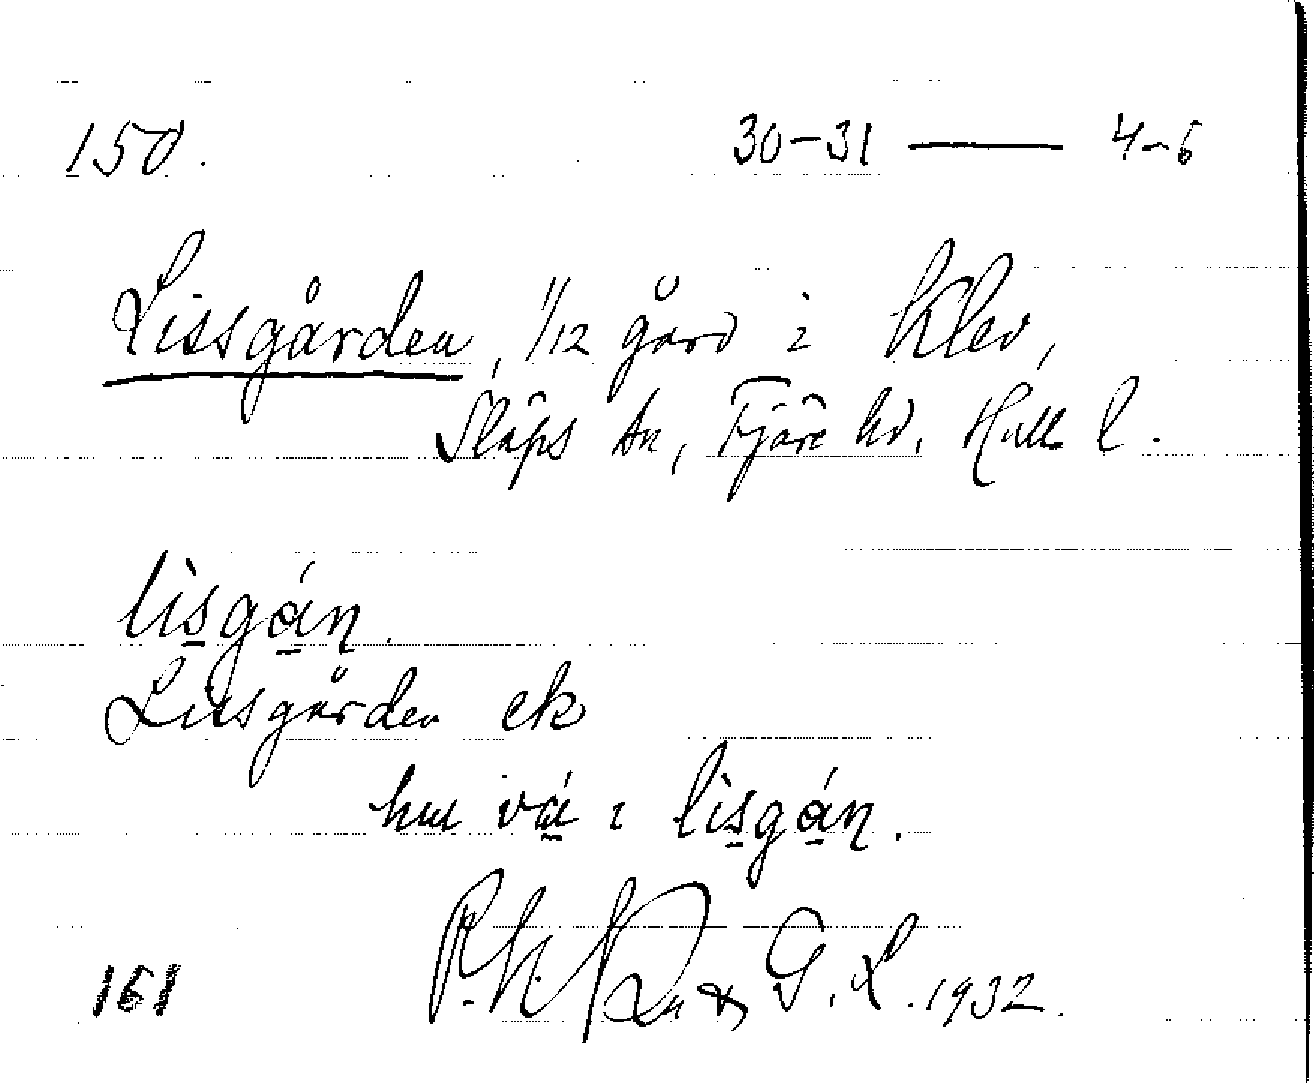 150. 30–31 —— 4–6
Lissgården, 1/12 gård i Klev,
Släps sn, Fjäre hd. Hall l.
lìsgán.
Lissgården ek
hut vá i lìsgán.
G. L. 1932.
161